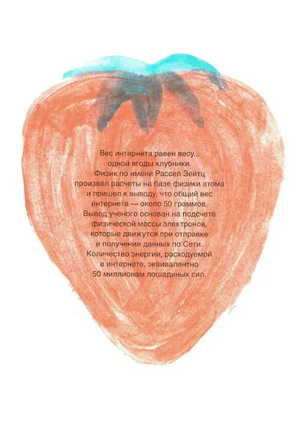 Вес интернета равен весу..,
одной ягоды клубники.
Физик по имени Рассел Зейтц
произвел расчеты на базе физики атома
и пришел к выводу, что общий вес
интернета — около 50 граммов.
Вывод ученого основан на подсчете
физической массы электронов,
которые движутся при отправке
и получении данных по Сети.
Количество энергии, расходуемой
в интернете, эквивалентно
50 миллионам лошадиных сил.